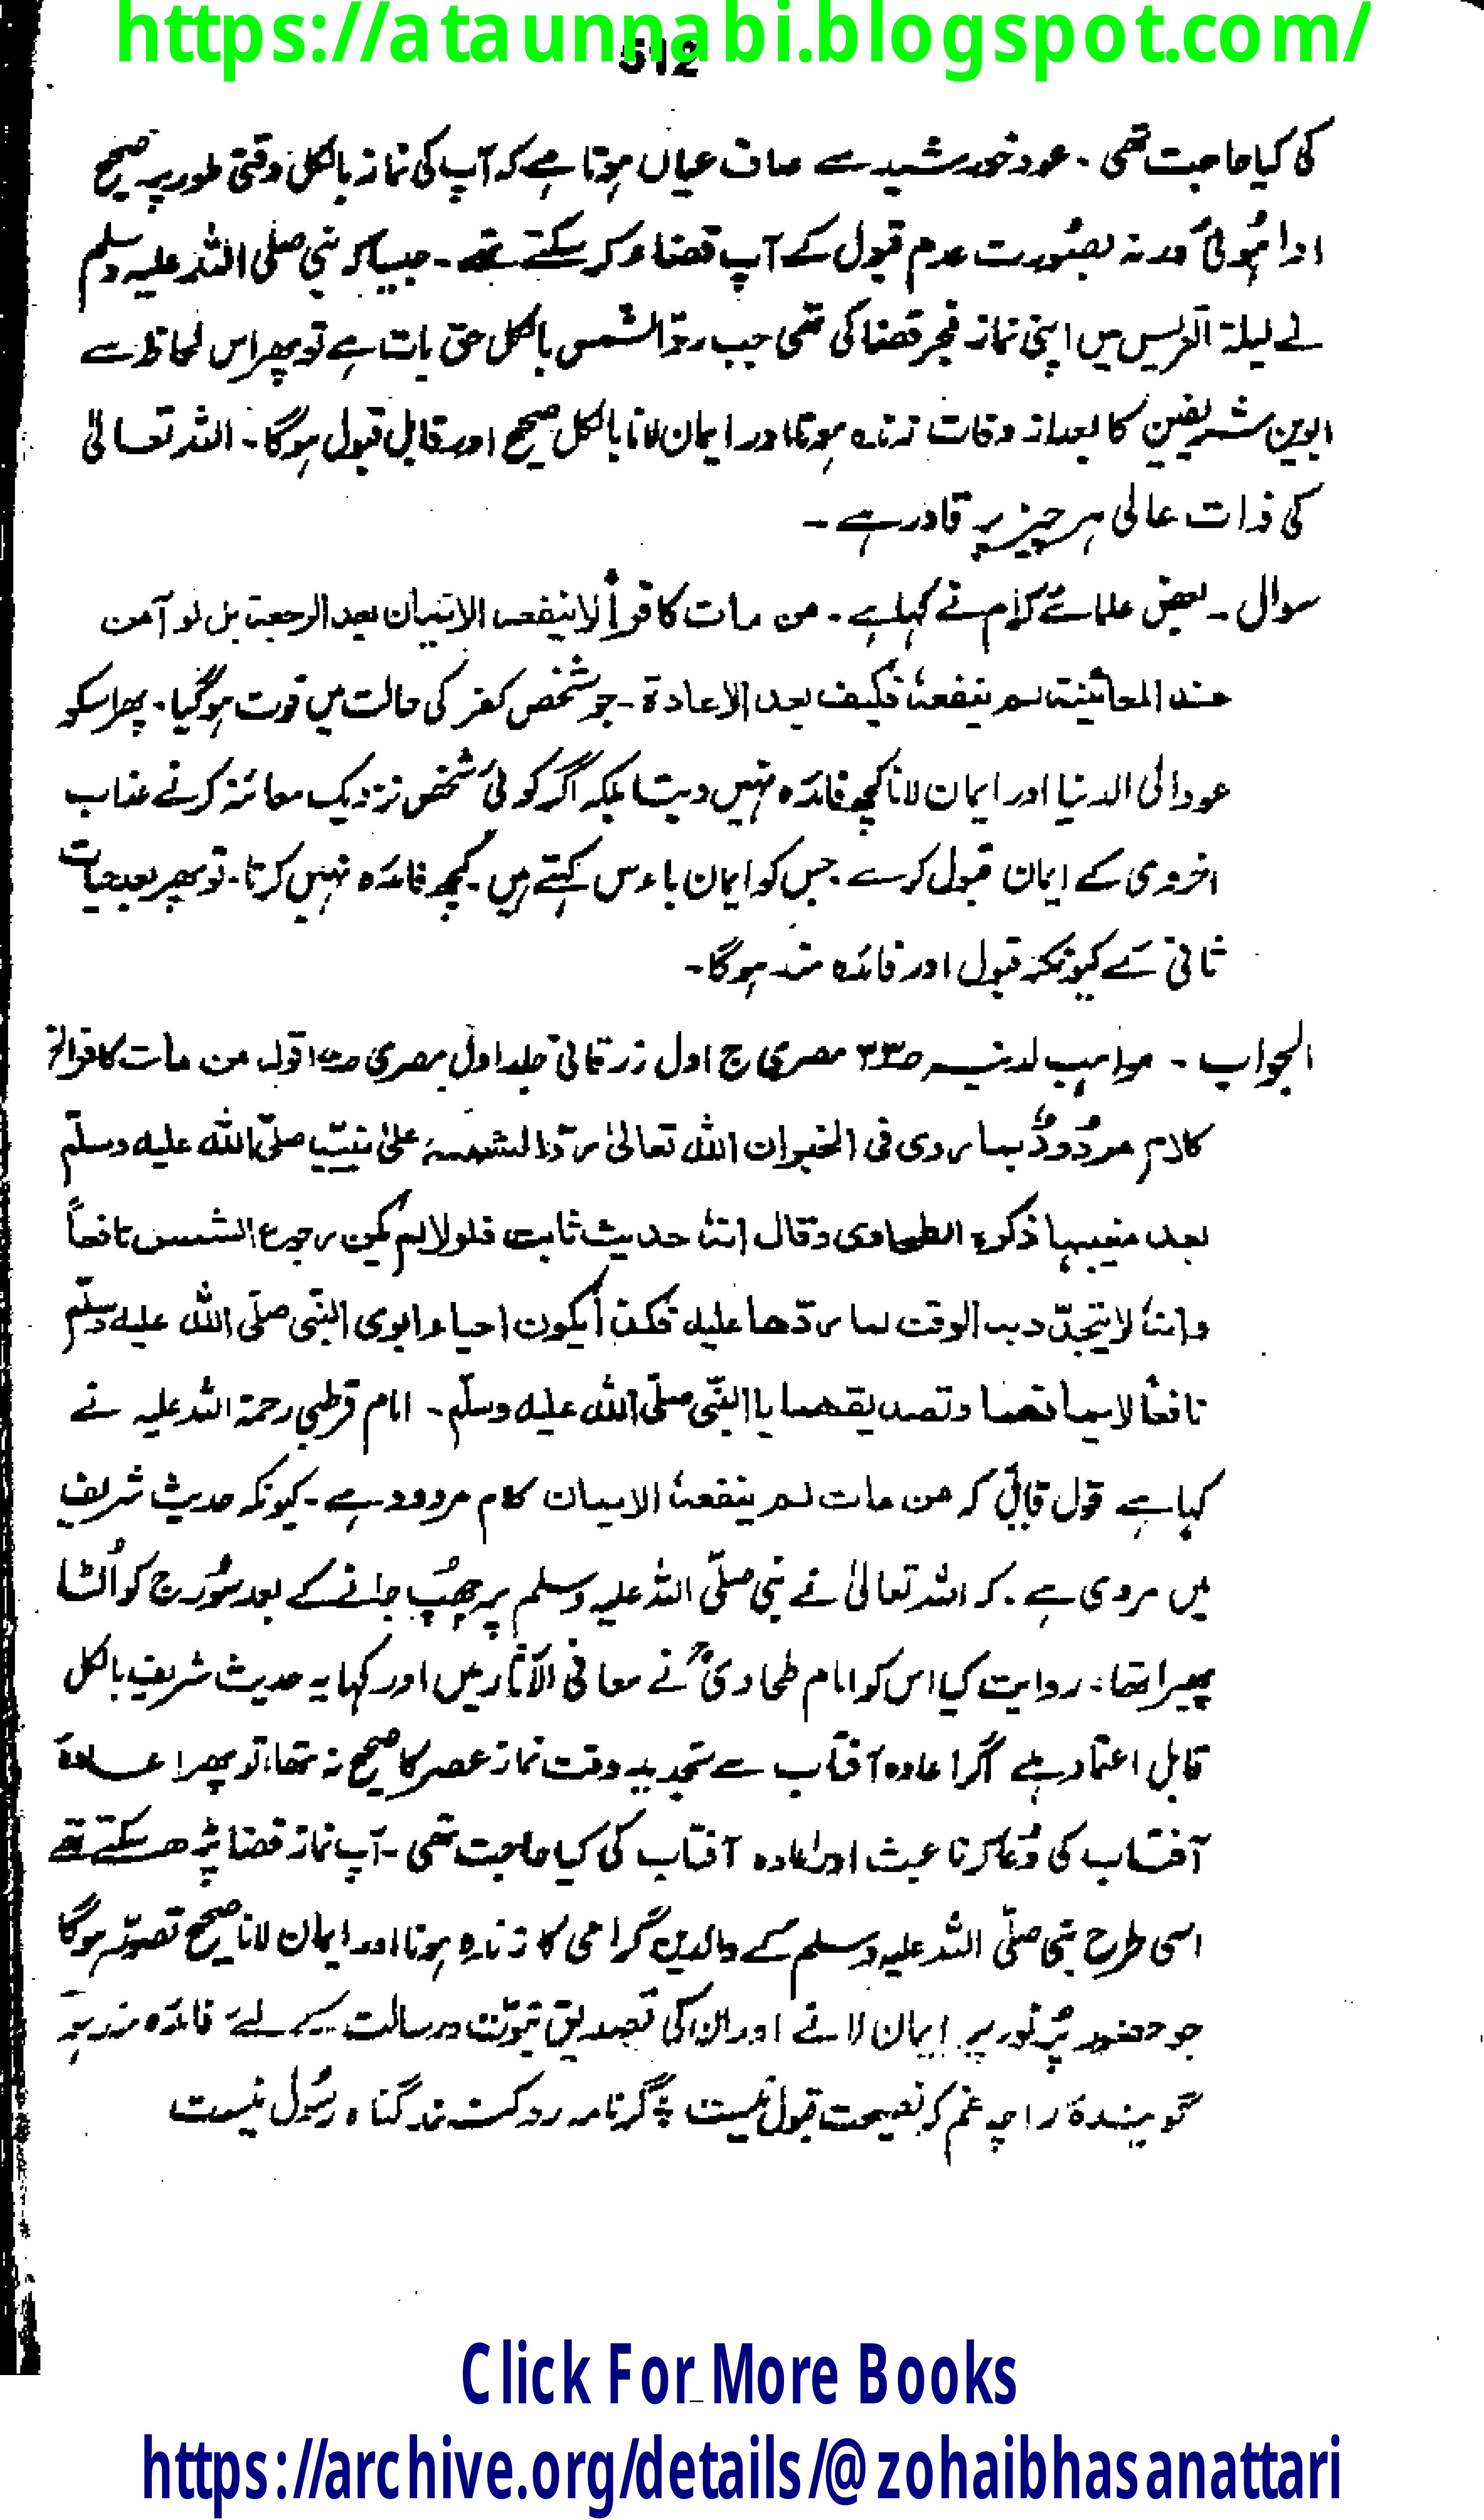 https://ataunnabi.blogspot.com/
512
کی کیا حاجت تھی۔ عود خورشید سے صاف عیاں ہوتا ہے کہ آپ کی نماز بالکل وقتی طور پر صحیح
ادا ہُوئی ورنہ بصُورت عدم قبول کے آپ قضاء کر سکتے تھے۔ جیسا کہ نبی صلی اللہ علیہ وسلم
نے لیلۃ التعریس میں اپنی نماز فجر قضا کی تھی جب ردّ الشمس بالکل حق بات ہے تو پھر اس لحاظ سے
ابوین شریفین کا بعد از وفات زندہ ہونا اور ایمان لانا بالکل صحیح اور قابل قبول ہوگا۔ اللہ تعالیٰ
کی ذات عالی ہر چیز پر قادر ہے۔
سوال۔ بعض علمائے کرام نے کہا ہے۔ من مات کافراً لا ینفعہ الایمان بعد الرجعۃ بل لو آمن
عند المعائینۃ لم ینفعہٗ فکیف بعد الاعادۃ۔ جو شخص کفر کی حالت میں فوت ہوگیا۔ پھر اسکو
عود الی الدنیا اور ایمان لانا کچھ فائدہ نہیں دیتا بلکہ اگر کوئی شخص نزدیک معائنہ کرنے عذاب
اخروی کے ایمان قبول کرے۔ جس کو ایمان باءس کہتے ہیں۔ کچھ فائدہ نہیں کرتا۔ تو پھر بعد حیات
ثانی کے کیونکر قبول اور فائدہ مند ہوگا۔
الجواب۔ مواہب لدنیہ ص۳۳ مصری ج اول زرقانی جلد اول مصری قولہ من مات کافرا الخ
کلام مردُودٌ بما روی فی الخبر ان اللہ تعالیٰ ردّ الشمس علیٰ نبیّہٖ صلّی اللہ علیہ وسلّم
بعد مغیبہا ذکرہ الطحاوی وقال انہٗ حدیث ثابت فلولا لم یکن رجوع الشمس نافعاً
وانہٗ لا یتجدّد بہ الوقت لما ردّھا علیہ فکذا یکون احیاء ابوی النبّی صلّی اللہ علیہ وسلّم
نافعاً لایمانھما وتصدیقھما باالنبّی صلّی اللہ علیہ وسلّم۔ امام قرطبی رحمۃ اللہ علیہ نے
کہا ہے قول قائل کہ من مات لم ینفعہٗ الایمان کلام مردود ہے۔ کیونکہ حدیث شریف
میں مروی ہے۔ کہ اللہ تعالیٰ نے نبی صلّی اللہ علیہ وسلم پر چھپ جانے کے بعد سُورج کو اُلٹا
پھیرا تھا۔ روایت کیا اس کو امام طحاویؒ نے معانی الآثار میں اور کہا یہ حدیث شریف بالکل
قابل اعتماد ہے اگر اعادہ آفتاب سے تجدید وقت نماز عصر کا صحیح نہ تھا، تو پھر اعادہ
آفتاب کی دُعا کرنا عبث اور اعادہ آفتاب کی کیا حاجت تھی۔ آپ نماز قضا پڑھ سکتے تھے
اسی طرح نبی صلّی اللہ علیہ وسلم کے والدین گرامی کا زندہ ہونا اور ایمان لانا صحیح تصوّر ہوگا
جو حضور پُرنور پر ایمان لانے اور ان کی تصدیق نبوّت و رسالت کے لئے فائدہ مند ہے
گویندۂ را چہ غم کہ نصیحت قبول نیست ؞ گر نامہ رد کنند گناہ رسُول نیست
Click For More Books
https://archive.org/details/@zohaibhasanattari